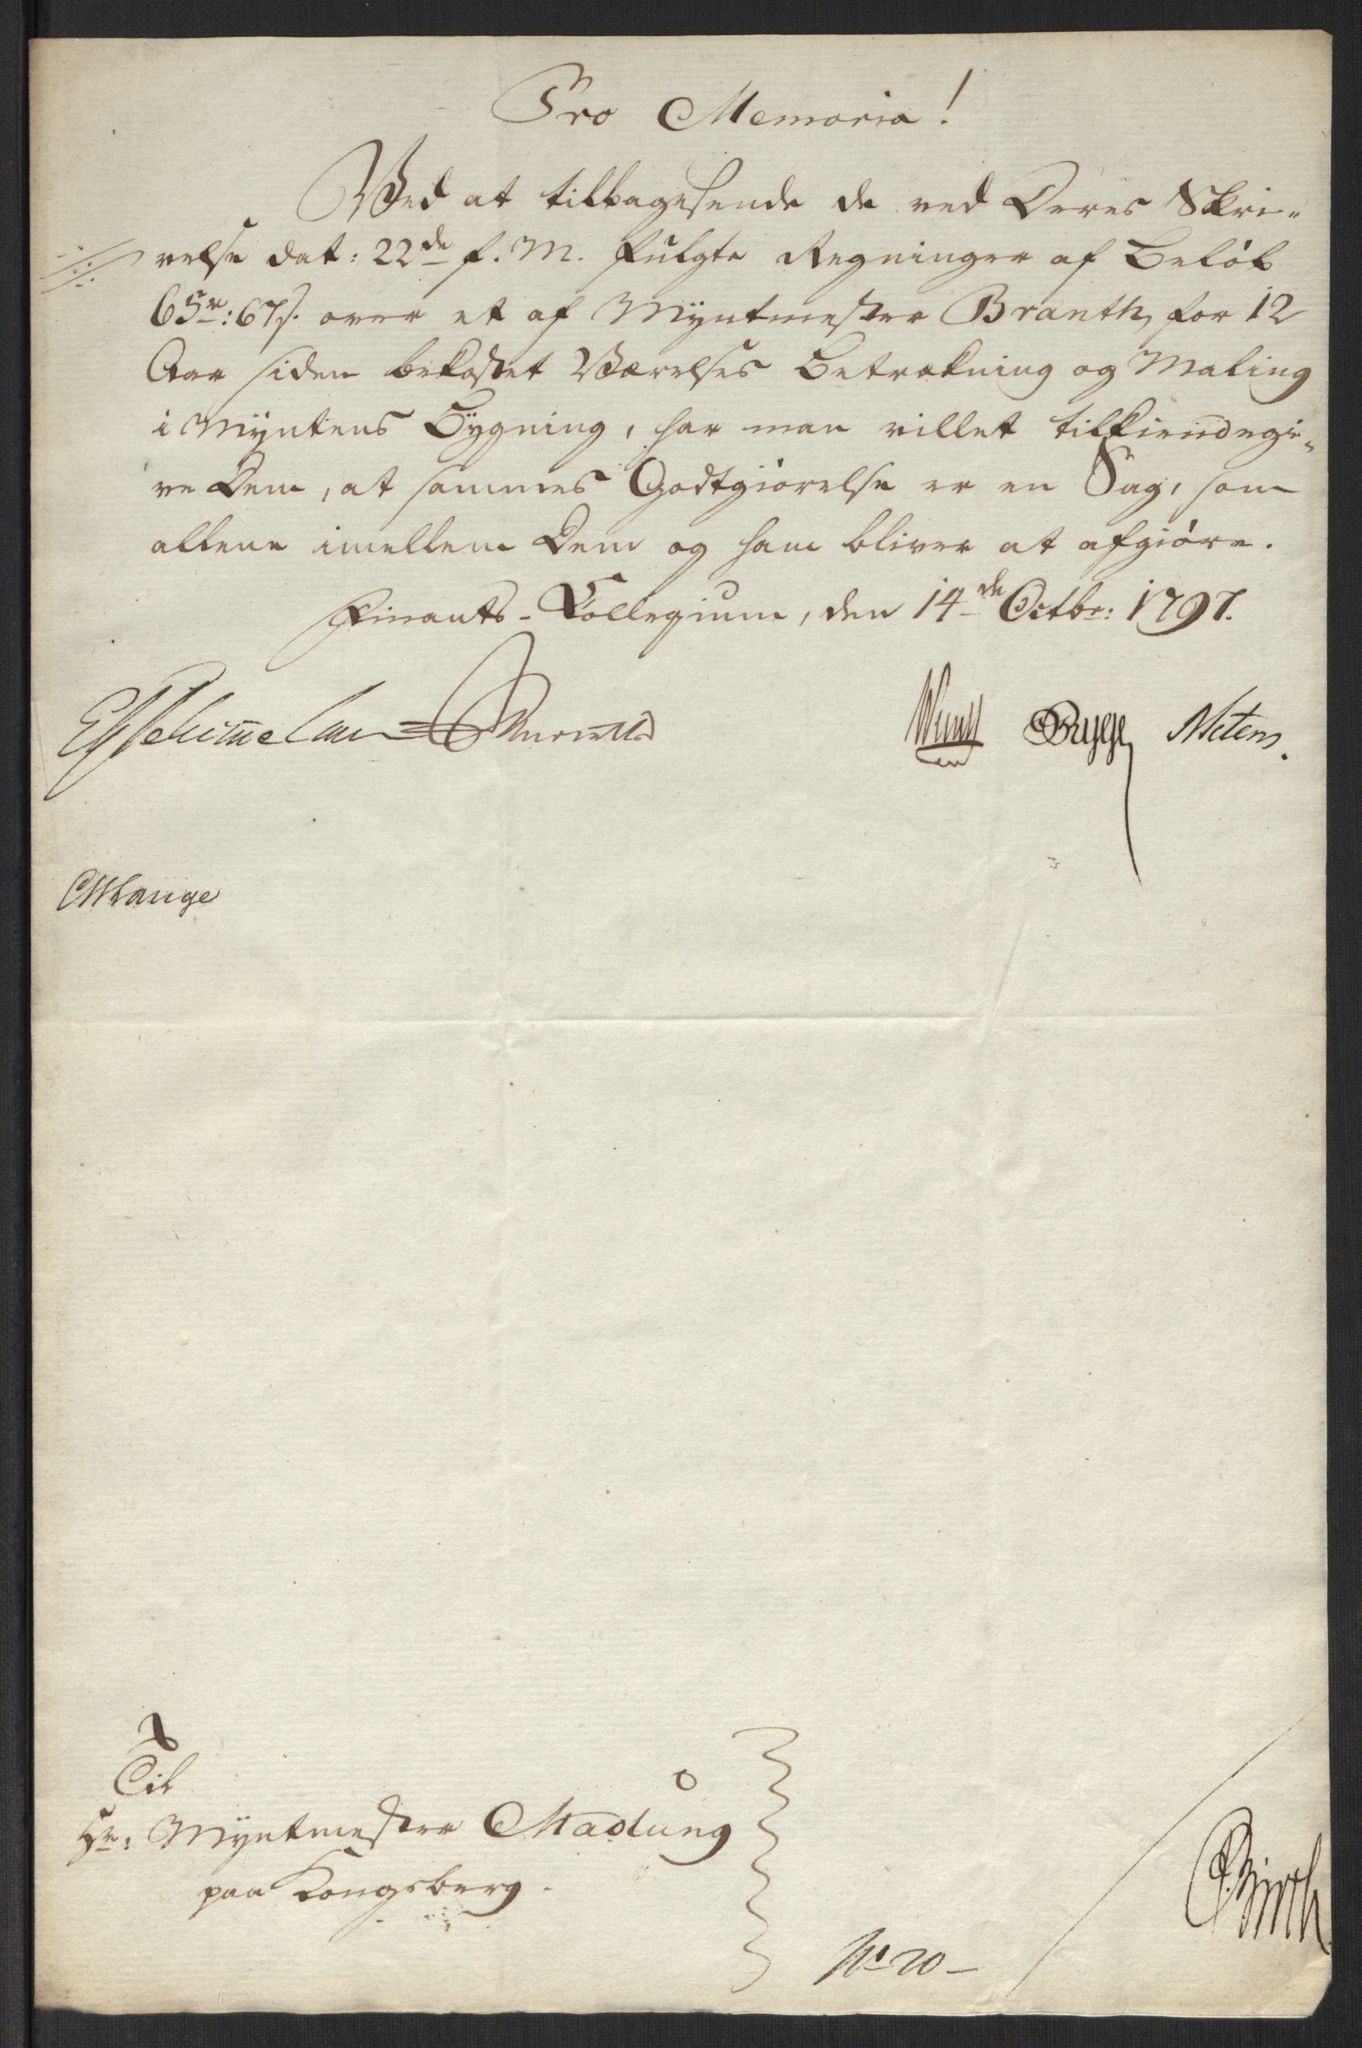 Pro Memoria!
Ved at tilbagesende de ved Deres Skri-
velse dat: 22de f. M. fulgte Regninger af Beløb
65r: 67s. over et af Myntmester Branth, for 12
Aar siden bekostet Værelses Betrækning og Maling
i Myntens Bÿgning, har man villet tilkiendegi-
ve Dem, at sammes Godtgiørelse er en Sag, som
allene imellem Dem og ham bliver at afgiøre.
Finants-Collegium, den 14de Octbr: 1797.
Schimmelmann
Wendt Bugge Mitens.
Lange
Til
Hr: Myntmester Madlung
paa Kongsberg.
No 20
Birch